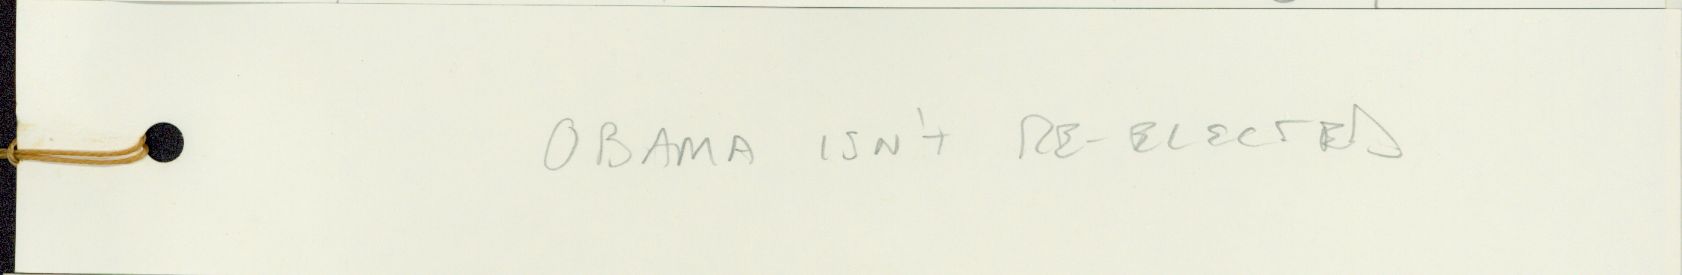 OBAMA ISN't RE-ELECTED